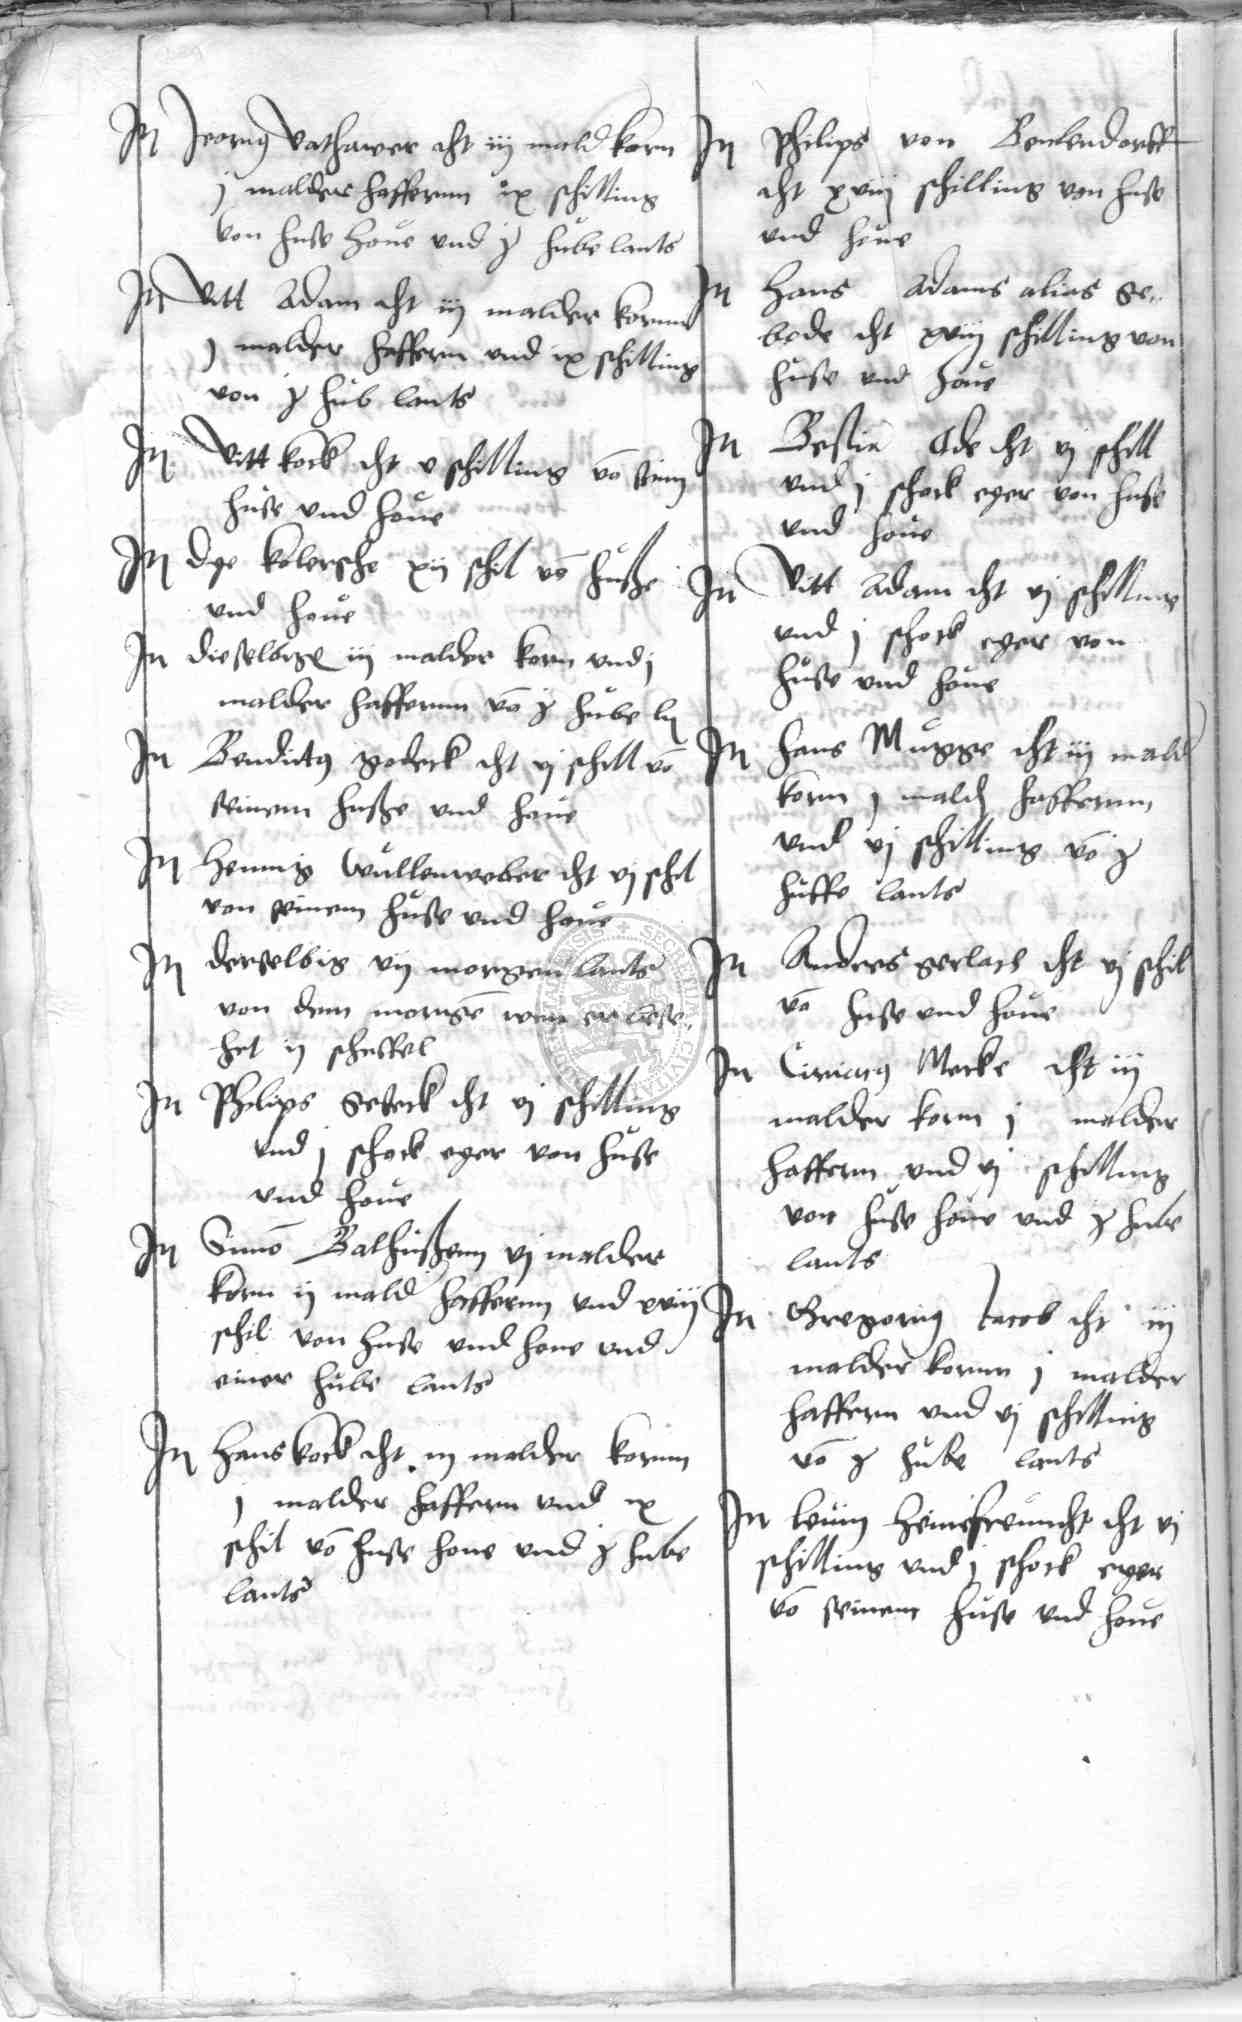 Itm Jeorig Vathawer cht iij mald korn
j malder haffernn ix schilling
von huse houe vnd j hube lants
Itm Vitt Adam cht iij malder kornn
j malder haffern vnd ix schilling
von j hub lants
Itm Vitt kock cht v schilling vō sinm
huse vnd houe
Itm dye kolersche xij schil vō huße
vnd houe
Itm dieselbige iij malder korn vnd j
malder haffernn vō j hube
Itm Bendictg godeck cht vj schill vō
seinem huße vnd houe
Itm Hennig Wullenweber cht vj schil
von seinem huse vnd houe
Itm derselbig vij morgen lants
von dem morgē wan er
het ij scheffel
Itm Philips Gebeck cht vj schilling
vnd j schock eyer von huse
vnd houe
Itm Simō Balhußenn vj malder
korn ij mald haffernn vnd xviij
schil von huse vnd houe vnd
einer hube lants
Itm Hans kock cht iij malder kornn
j malder haffern vnd ix
schil vō huse houe vnd j hube
lants
Itm Philips von Benlendorff
cht xviij schilling von huse
vnd houe
Itm Hans Adams alias Ge-
bede cht xviij schilling von
huse vnd houe
Itm Bestia Ode cht vj schill
vnd j schock eyer von huse
vnd houe
Itm Vitt Adam cht vj schilling
vnd j schock eyer von
huse vnd houe
Itm hans Mugge cht iij mald
korn j mald haffernn
vnd vj schilling vō j
huffe lants
Itm Andres gerlach cht vj schil
vō huse vnd houe
Itm Ciriacg Mecke cht iij
malder korn j malder
haffern vnd vj schilling
von huse houe vnd j hube
lants
Itm Gregorig Jacob cht iij
malder kornn j malder
haffern vnd vj schilling
vō j hube lants
Itm heimfreuncht cht vj
schilling vnd j schock eyer
vō seinem huse vnd houe